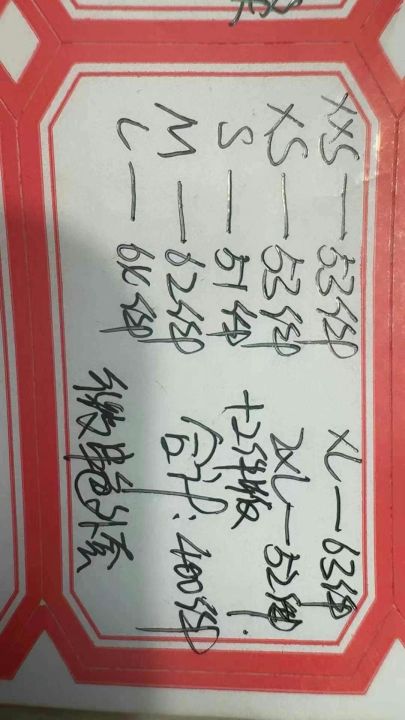 XXS — 53件
XS — 53件
S — 51件
M — 62件
L — 64件
XL — 63件
2XL — 52件
+2件版
合计: 400件
单色外套